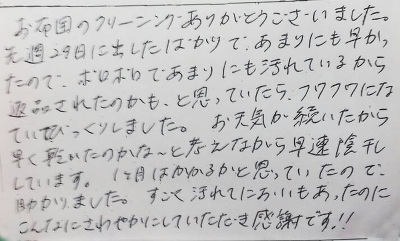 お布団のクリーニングありがとうございました。
先週29日に出したばかりで、あまりにも早かっ
たので、ボロボロであまりにも汚れているから
返品されたのかも、と思っていたら、フワフワにな
ていてびっくりしました。 お天気が続いたから
早く乾いたのかな～と考えながら早速陰干し
しています。 1ヶ月はかかるかと思っていたので、
助かりました。 すごく汚れてにおいもあったのに
こんなにさわやかにしていただき感謝です!!